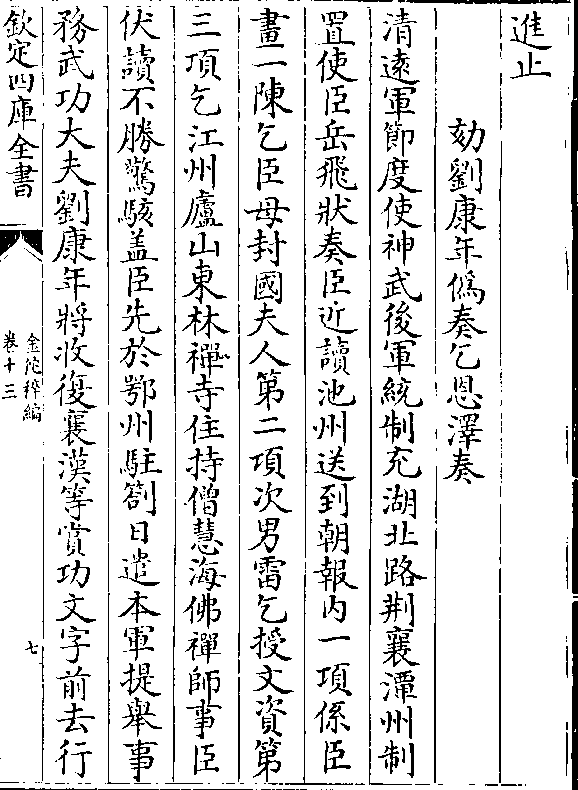 進止
劾劉康年僞奏乞恩澤奏
清逺軍節度使神武後軍統制充湖北路荆襄潭州制
置使臣岳飛狀奏臣近讀池州送到朝報内一項係臣
畫一陳乞臣母封國夫人第二項次男雷乞授文資第
三項乞江州廬山東林禪寺住持僧慧海佛禪師事臣
伏讀不勝驚駭盖臣先於鄂州駐劄日遣本軍提舉事
務武功大夫劉康年將收復襄漢等賞功文字前去行
欽定四庫全書
金陀稡編
卷十三
七